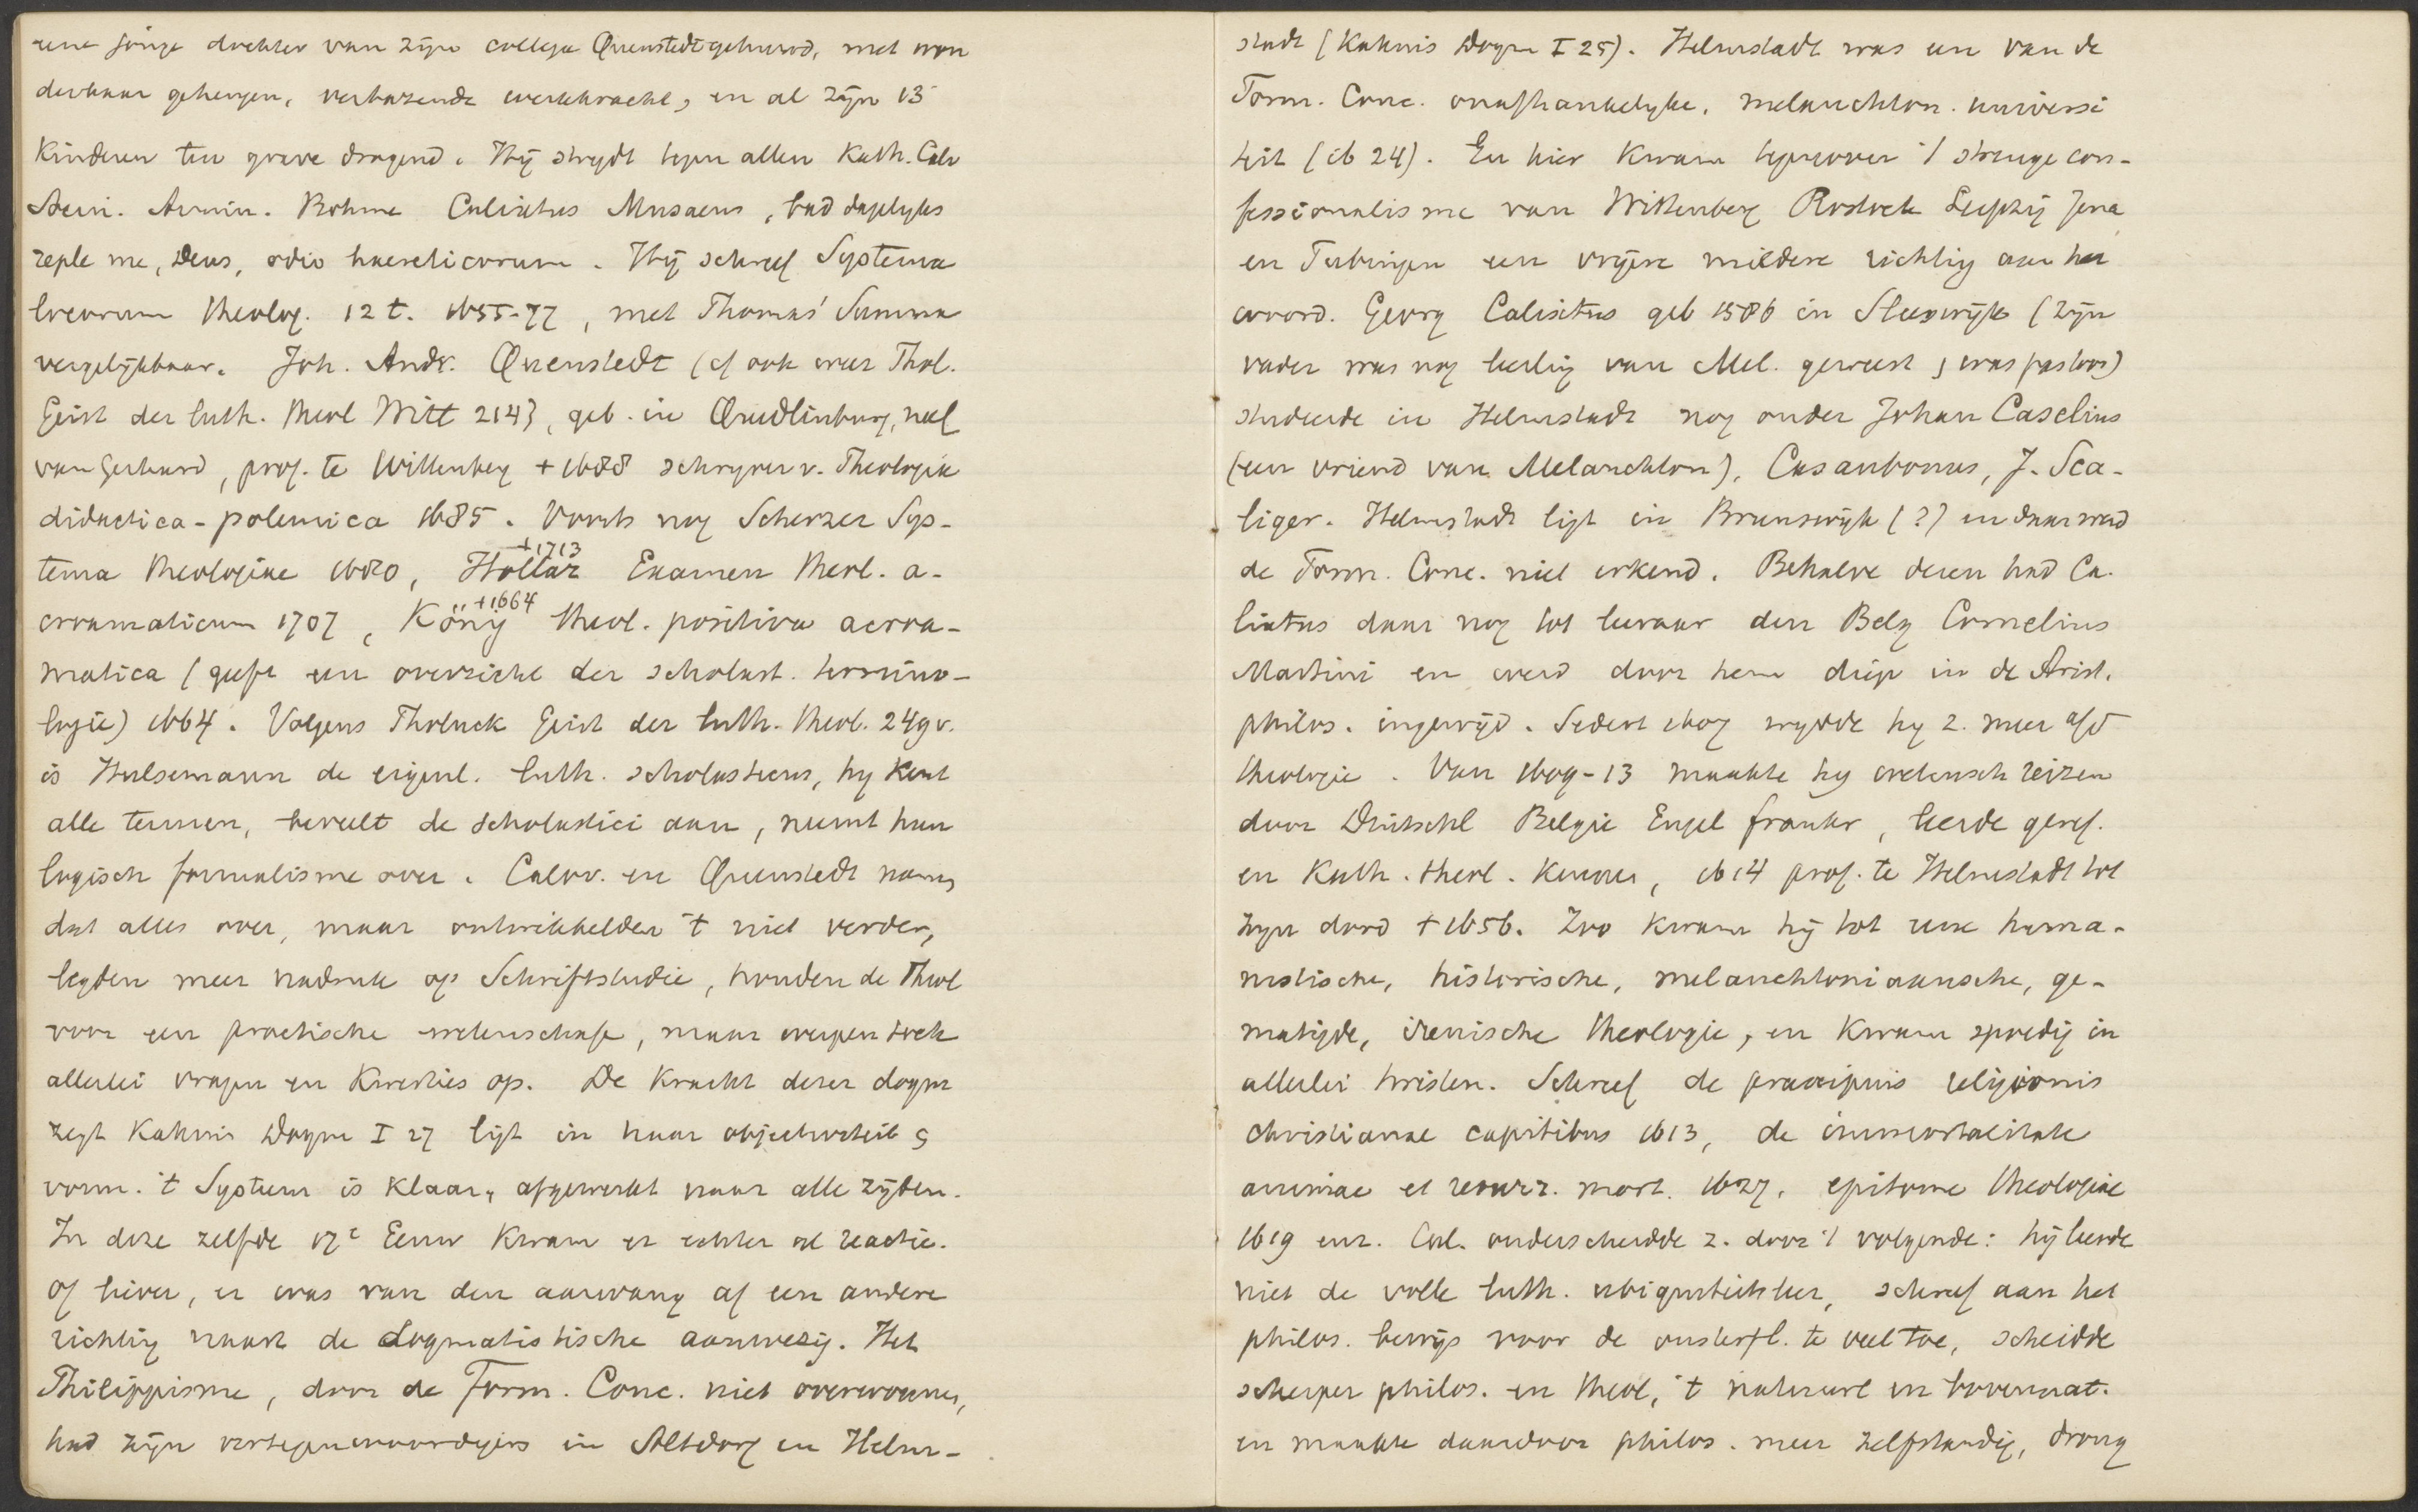 eene jonge dochter van zijn collega Quenstedt gehuwd, met won
derbaar geheugen, verbazende werkkracht, en al zijn 13
Kinderen ten grave dragend. Hij strydt tegen allen Kath. Calv
Socin. Armin. Bohme Calixtus Musaeus, bad dagelyks
reple me, Deus, odio haereticorum. Hij schreef Systema
locorum theolog. 12 t. 1655-77, met Thomas' Summa
vergelijkbaar. Joh. Andr. Quenstedt (cf ook over Thol.
Geist der luth. Theol Witt 214), geb. in Quedlinburg, neef
van Gerhard, prof. te Wittenberg + 1688 schryver v. Theologia
didactica-polemica 1685. Voorts nog Scherzer Sys-
tema theologiae 1680, Hollaz +1713 Examen theol. a-
croamaticum 1707, König +1664 theol. positiva acroa-
matica (geeft een overzicht der scholast. termino-
logie) 1664. Volgens Tholuck Geist der luth. theol. 249 v.
is Hulsemann de eigenl. luth. scholasticus, hy kent
alle termen, beveelt de scholastici aan, neemt hun
logisch formalisme over. Calov. en Quenstedt namen
dat alles over, maar ontwikkelden 't niet verder,
legden meer nadruk op Schriftstudie, houden de Theol
voor een practische wetenschap, maar werpen toch
allerlei vragen en Kwesties op. De kracht dezer dogm
zegt Kahnis Dogm I 27 ligt in haar objectiviteit &
vorm. 't Systeem is klaar, afgewerkt naar alle zijden.
In deze zelfde 17e Eeuw kwam er echter al reactie.
Of liever, er was van den aanvang af een andere
richtig naast de dogmatistische aanwezig. Het
Philippisme, door de Form. Conc. niet overwonnen,
had zijn vertegenwoordigers in Altdorf en Helm-
stadt (Kahnis Dogm I 25). Helmstadt was een van de
Form. Conc. onafhankelyke, melanchton. universi
teit (ib 24). En hier kwam tegenover 't strenge con-
fessionalisme van Wittenberg Rostock Leipzig Jena
en Tubingen een vrijere mildere richtig aan het
woord. Georg Calixtus geb 1586 in Sleeswijk (zijn
vader was nog leerling van Mel. geweest, was pastoor)
studeerde in Helmstadt nog onder Johan Caselius
(een vriend van Melanchton), Casaubonus, J. Sca-
liger. Helmstadt ligt in Brunswijk (?) en daar werd
de Form. Conc. niet erkend. Behalve dezen had Ca-
lixtus daar nog tot leeraar den Belg Cornelius
Martini en werd door hem diep in de Arist.
philos. ingewijd. Sedert 1607 wydde hy z. meer a/d
theologie. Van 1609-13 maakte hy wetensch reizen
door Duitschl Belgie Engel frankr, leerde geref.
en Kath. theol. kennen, 1614 prof. te Helmstadt tot
zyn dood + 1656. Zoo kwam hij tot eene huma-
nistische, historische, melanchtoniaansche, ge-
matigde, irenische theologie, en kwam spoedig in
allerlei twisten. Schreef de praecipuis religionis
christianae capitibus 1613, de immortalitate
animae et resurr. mort. 1627, epitome theologiae
1619 enz. Cal. onderscheidde z. door 't volgende: hij leerde
niet de volle luth. ubiquiteitsleer, schreef aan het
philos. bewijs voor de onsterfl. te veel toe, scheidde
scherper philos. en theol, 't natuurl en bovennat.
en maakte daardoor philos. meer zelfstandig, drong